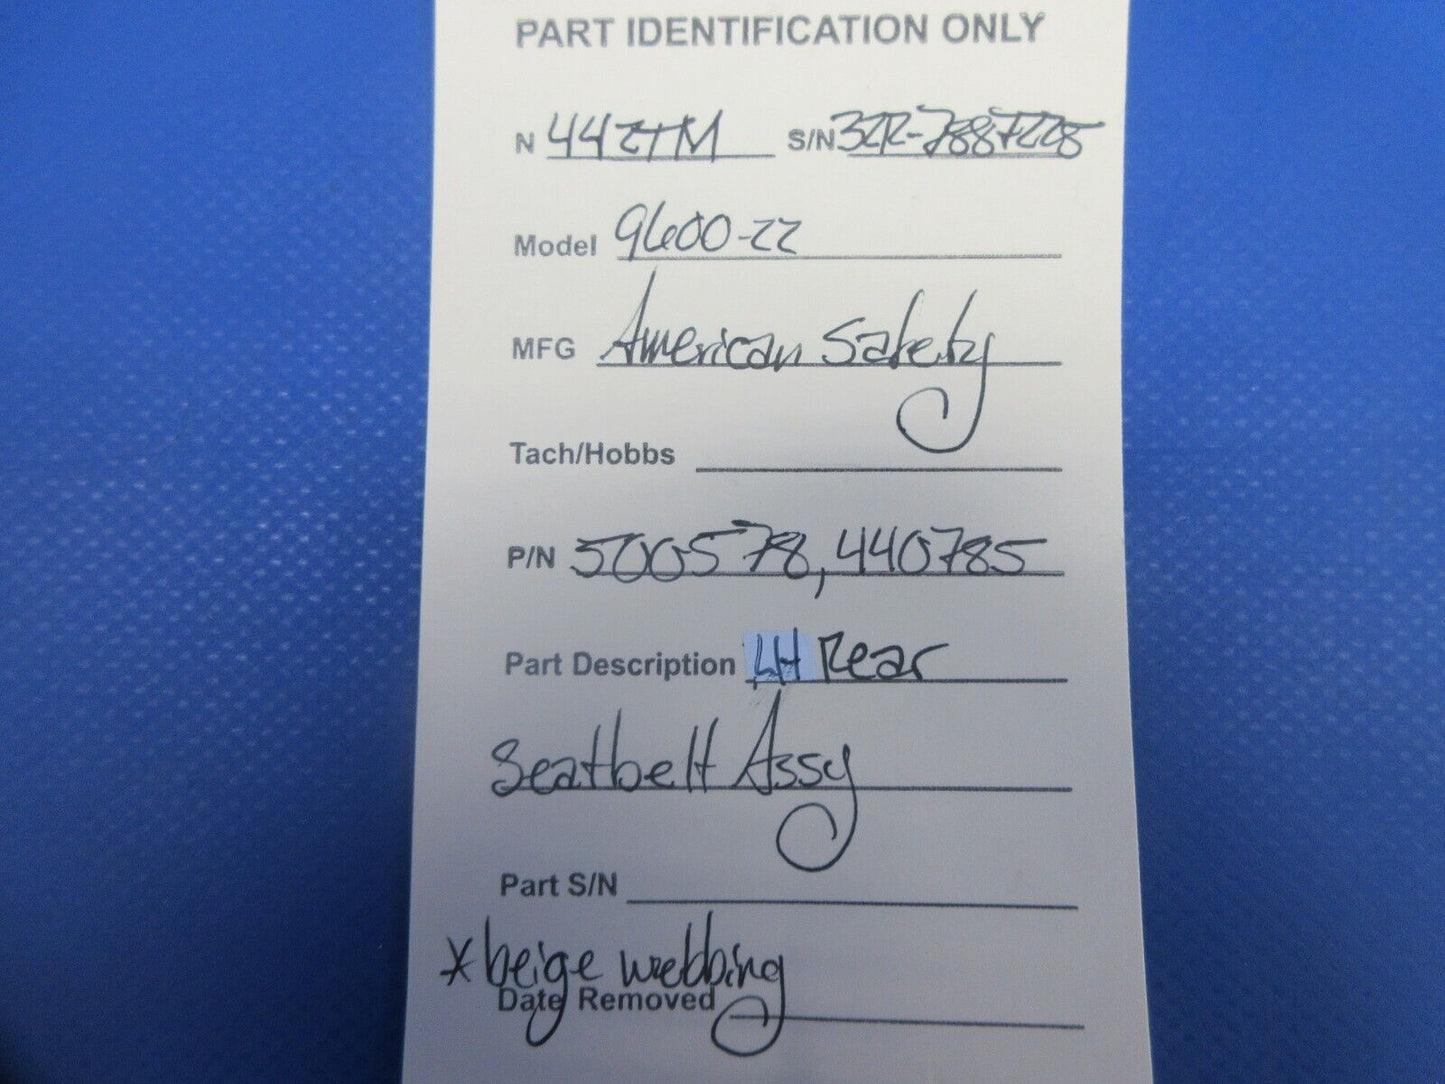 PART IDENTIFICATION ONLY
N 442TM S/N 32R-7887228
Model 9600-22
MFG American Safety
Tach/Hobbs
P/N 500578, 440785
Part Description LH Rear
Seatbelt Assy
Part S/N
*beige webbing
Date Removed